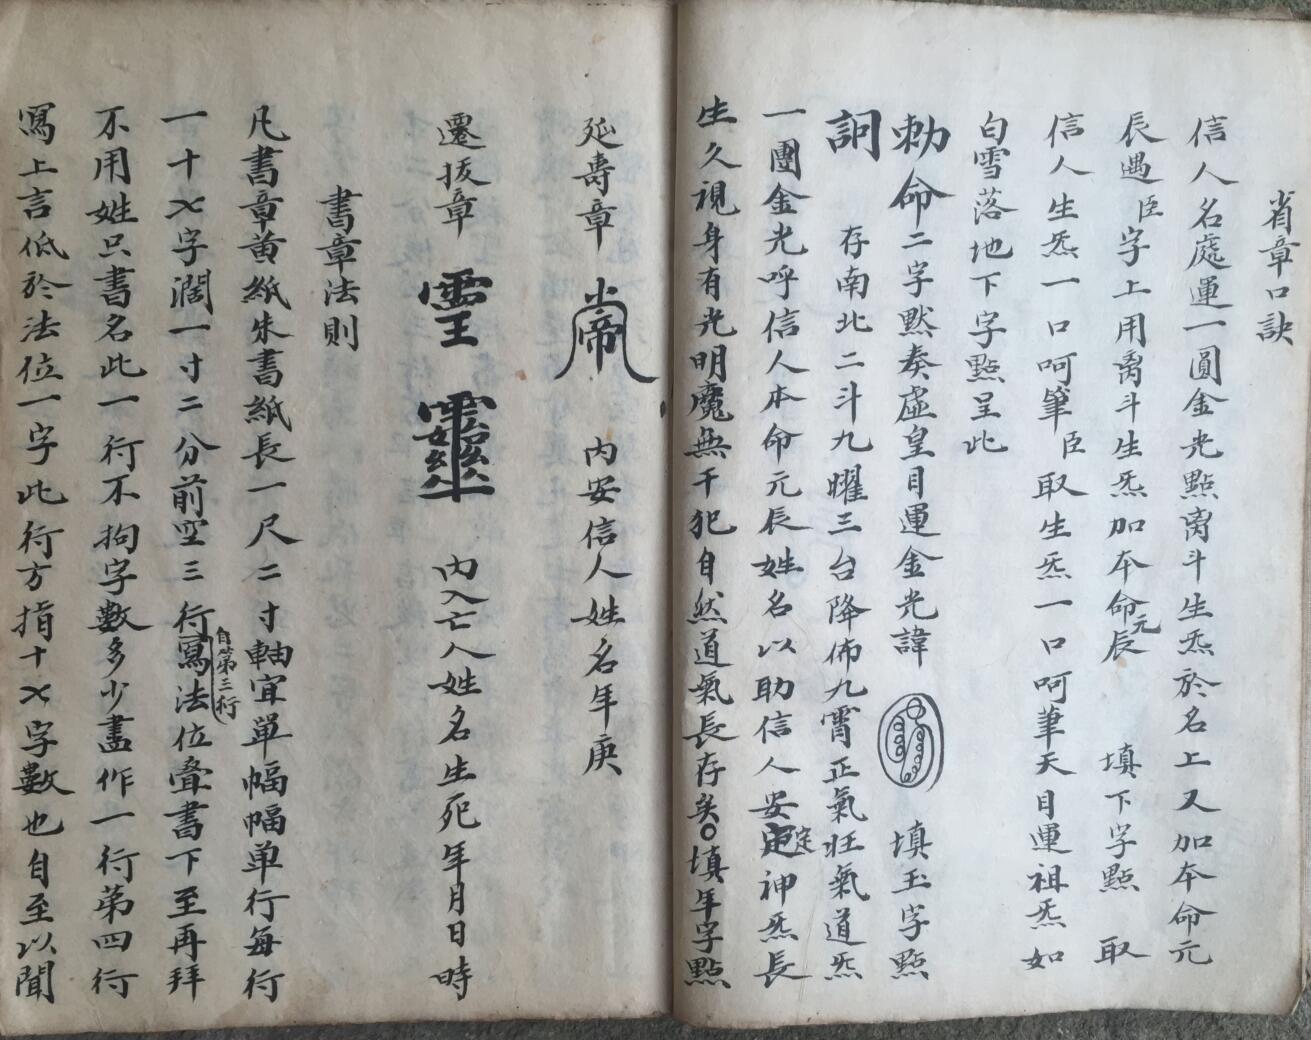 省章口訣
信人名處運一圓金光點离斗生炁於名上又加本命元
辰遇臣字上用离斗生炁加本命元辰 填下字點 取
信人生炁一口呵筆臣取生炁一口呵筆天目運祖炁如
白雪落地下字點呈此
勅命二字黙奏虛皇目運金光諱 填玉字點
詗 存南北二斗九曜三台降佈九霄正氣旺氣道炁
一團金光呼信人本命元長姓名以助信人安定神炁長
生久視身有光明魔無干犯自然道氣長存矣○填年字點
延壽章 內安信人姓名年庚
遷拔章 霊 靈 內入亡人姓名生死年月日時
書章法則
凡書章黄紙朱書紙長一尺二寸軸宜單幅幅单行每行
一十乄字濶一寸二分前空三行自第三行寫法位疊書下至再拜
不用姓只書名此一行不拘字數多少盡作一行第四行
寫上言低於法位一字此行方指十乄字數也自至以聞